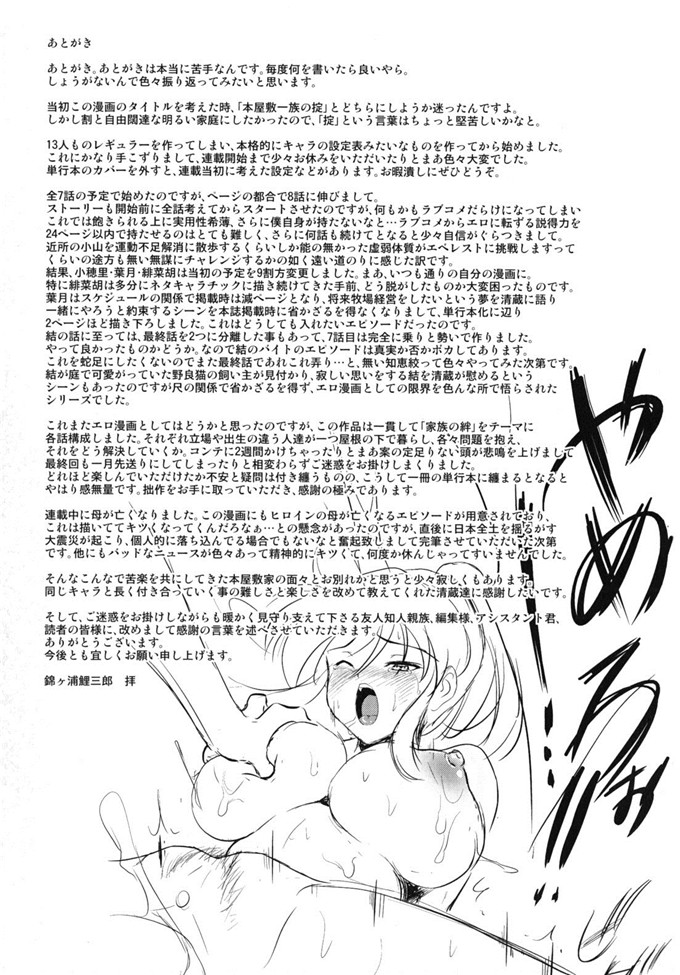 あとがき
あとがき。あとがきは本当に苦手なんです。毎度何を書いたら良いやら。
しょうがないんで色々振り返ってみたいと思います。
当初この漫画のタイトルを考えた時、「本屋敷一族の掟」とどちらにしようか迷ったんですよ。
しかし割と自由闊達な明るい家庭にしたかったので、「掟」という言葉はちょっと堅苦しいかなと。
13人もレギュラーを作ってしまい、本格的にキャラの設定表みたいなものを作ってから始めました。
これにかなり手こずりまして、連載開始まで少々お休みをいただいたりとまあ色々大変でした。
単行本のカバーを外すと、連載当初に考えた設定などがあります。お暇潰しにぜひどうぞ。
全7話の予定で始めたのですが、ページの都合で8話に伸びまして。
ストーリーも開始前に全話考えてからスタートさせたのですが、何もかもラブコメだらけになってしまい
これでは飽きられる上に実用性希薄、さらに僕自身が持たないなと…ラブコメからエロに転ずる説得力を
24ページ以内で持たせるのはとても難しく、さらに何話も続けてとなると少々自信がぐらつきまして。
近所の小山を運動不足解消に散歩するくらいしか能の無かった虚弱体質がエベレストに挑戦しますって
くらいの途方も無い無謀にチャレンジするかの如く遠い道のりに感じた訳です。
結果、小穂里・葉月・緋菜胡は当初の予定を9割方変更しました。まあ、いつも通りの自分の漫画に。
特に緋菜胡は多分にネタキャラチックに描き続けてきた手前、どう脱がしたものか大変困ったものです。
葉月はスケジュールの関係で掲載時は減ページとなり、将来牧場経営をしたいという夢を清蔵に語り
一緒にやろうと約束するシーンを本誌掲載時に省かざるを得なくなりまして、単行本化に辺り
2ページほど描き下ろしました。これはどうしても入れたいエピソードだったのです。
結の話に至っては、最終話を2つに分離した事もあって、7話目は完全に乗りと勢いで作りました。
やって良かったものかどうか。なので結のバイトのエピソードは真実か否かボカしてあります。
これを蛇足にしたくないのでまた最終話であれこれ弄り…と、無い知恵絞って色々やってみた次第です。
結が庭で可愛がっていた野良猫の飼い主が見付かり、寂しい思いをする結を清蔵が慰めるという
シーンもあったのですが尺の関係で省かざるを得ず、エロ漫画としての限界を色んな所で悟らされた
シリーズでした。
これまたエロ漫画としてはどうかと思ったのですが、この作品は一貫して「家族の絆」をテーマに
各話構成しました。それぞれ立場や出生の違う人達が一つ屋根の下で暮らし、各々問題を抱え、
それをどう解決していくか。コンテに2週間かけちゃったりとまあ案の定足りない頭が悲鳴を上げまして
最終回も一月先送りにしてしまったりと相変わらずご迷惑をお掛けしまくりました。
どれほど楽しんでいただけたか不安と疑問は付き纏うものの、こうして一冊の単行本に纏まるとなると
やはり感無量です。拙作をお手に取っていただき、感謝の極みであります。
連載中に母が亡くなりました。この漫画にもヒロインの母が亡くなるエピソードが用意されており、
これは描いててキツくなってくんだろなぁ…との懸念があったのですが、直後に日本全土を揺るがす
大震災が起こり、個人的に落ち込んでる場合でもないなと奮起致しまして完筆させていただいた次第
です。他にもバッドなニュースが色々あって精神的にキツくて、何度か休んじゃってすいませんでした。
そんなこんなで苦楽を共にしてきた本屋敷家の面々とお別れかと思うと少々寂しくもあります。
同じキャラと長く付き合っていく事の難しさと楽しさを改めて教えてくれた清蔵達に感謝したいです。
そして、ご迷惑をお掛けしながらも暖かく見守り支えて下さる友人知人親族、編集様、アシスタント君、
読者の皆様に、改めまして感謝の言葉を述べさせていただきます。
ありがとうございます。
今後とも宜しくお願い申し上げます。
錦ヶ浦鯉三郎　拝
やめろぉ